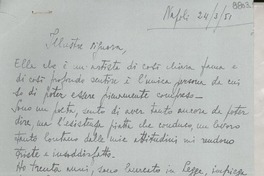 8863
Napoli 24/3/51
Illustre Signora,
Ella che è un'artista di così chiara fama e
di così profondo sentire è l'unica persona da cui
so di poter essere pienamente compreso -
Sono un poeta, sento di aver tanto ancora da poter
dire, ma l'esistenza piatta che conduco, un lavoro
tanto lontano dalle mie attitudini mi rendono
triste e insoddisfatto.
Ho trenta anni, sono laureato in Legge, impiega